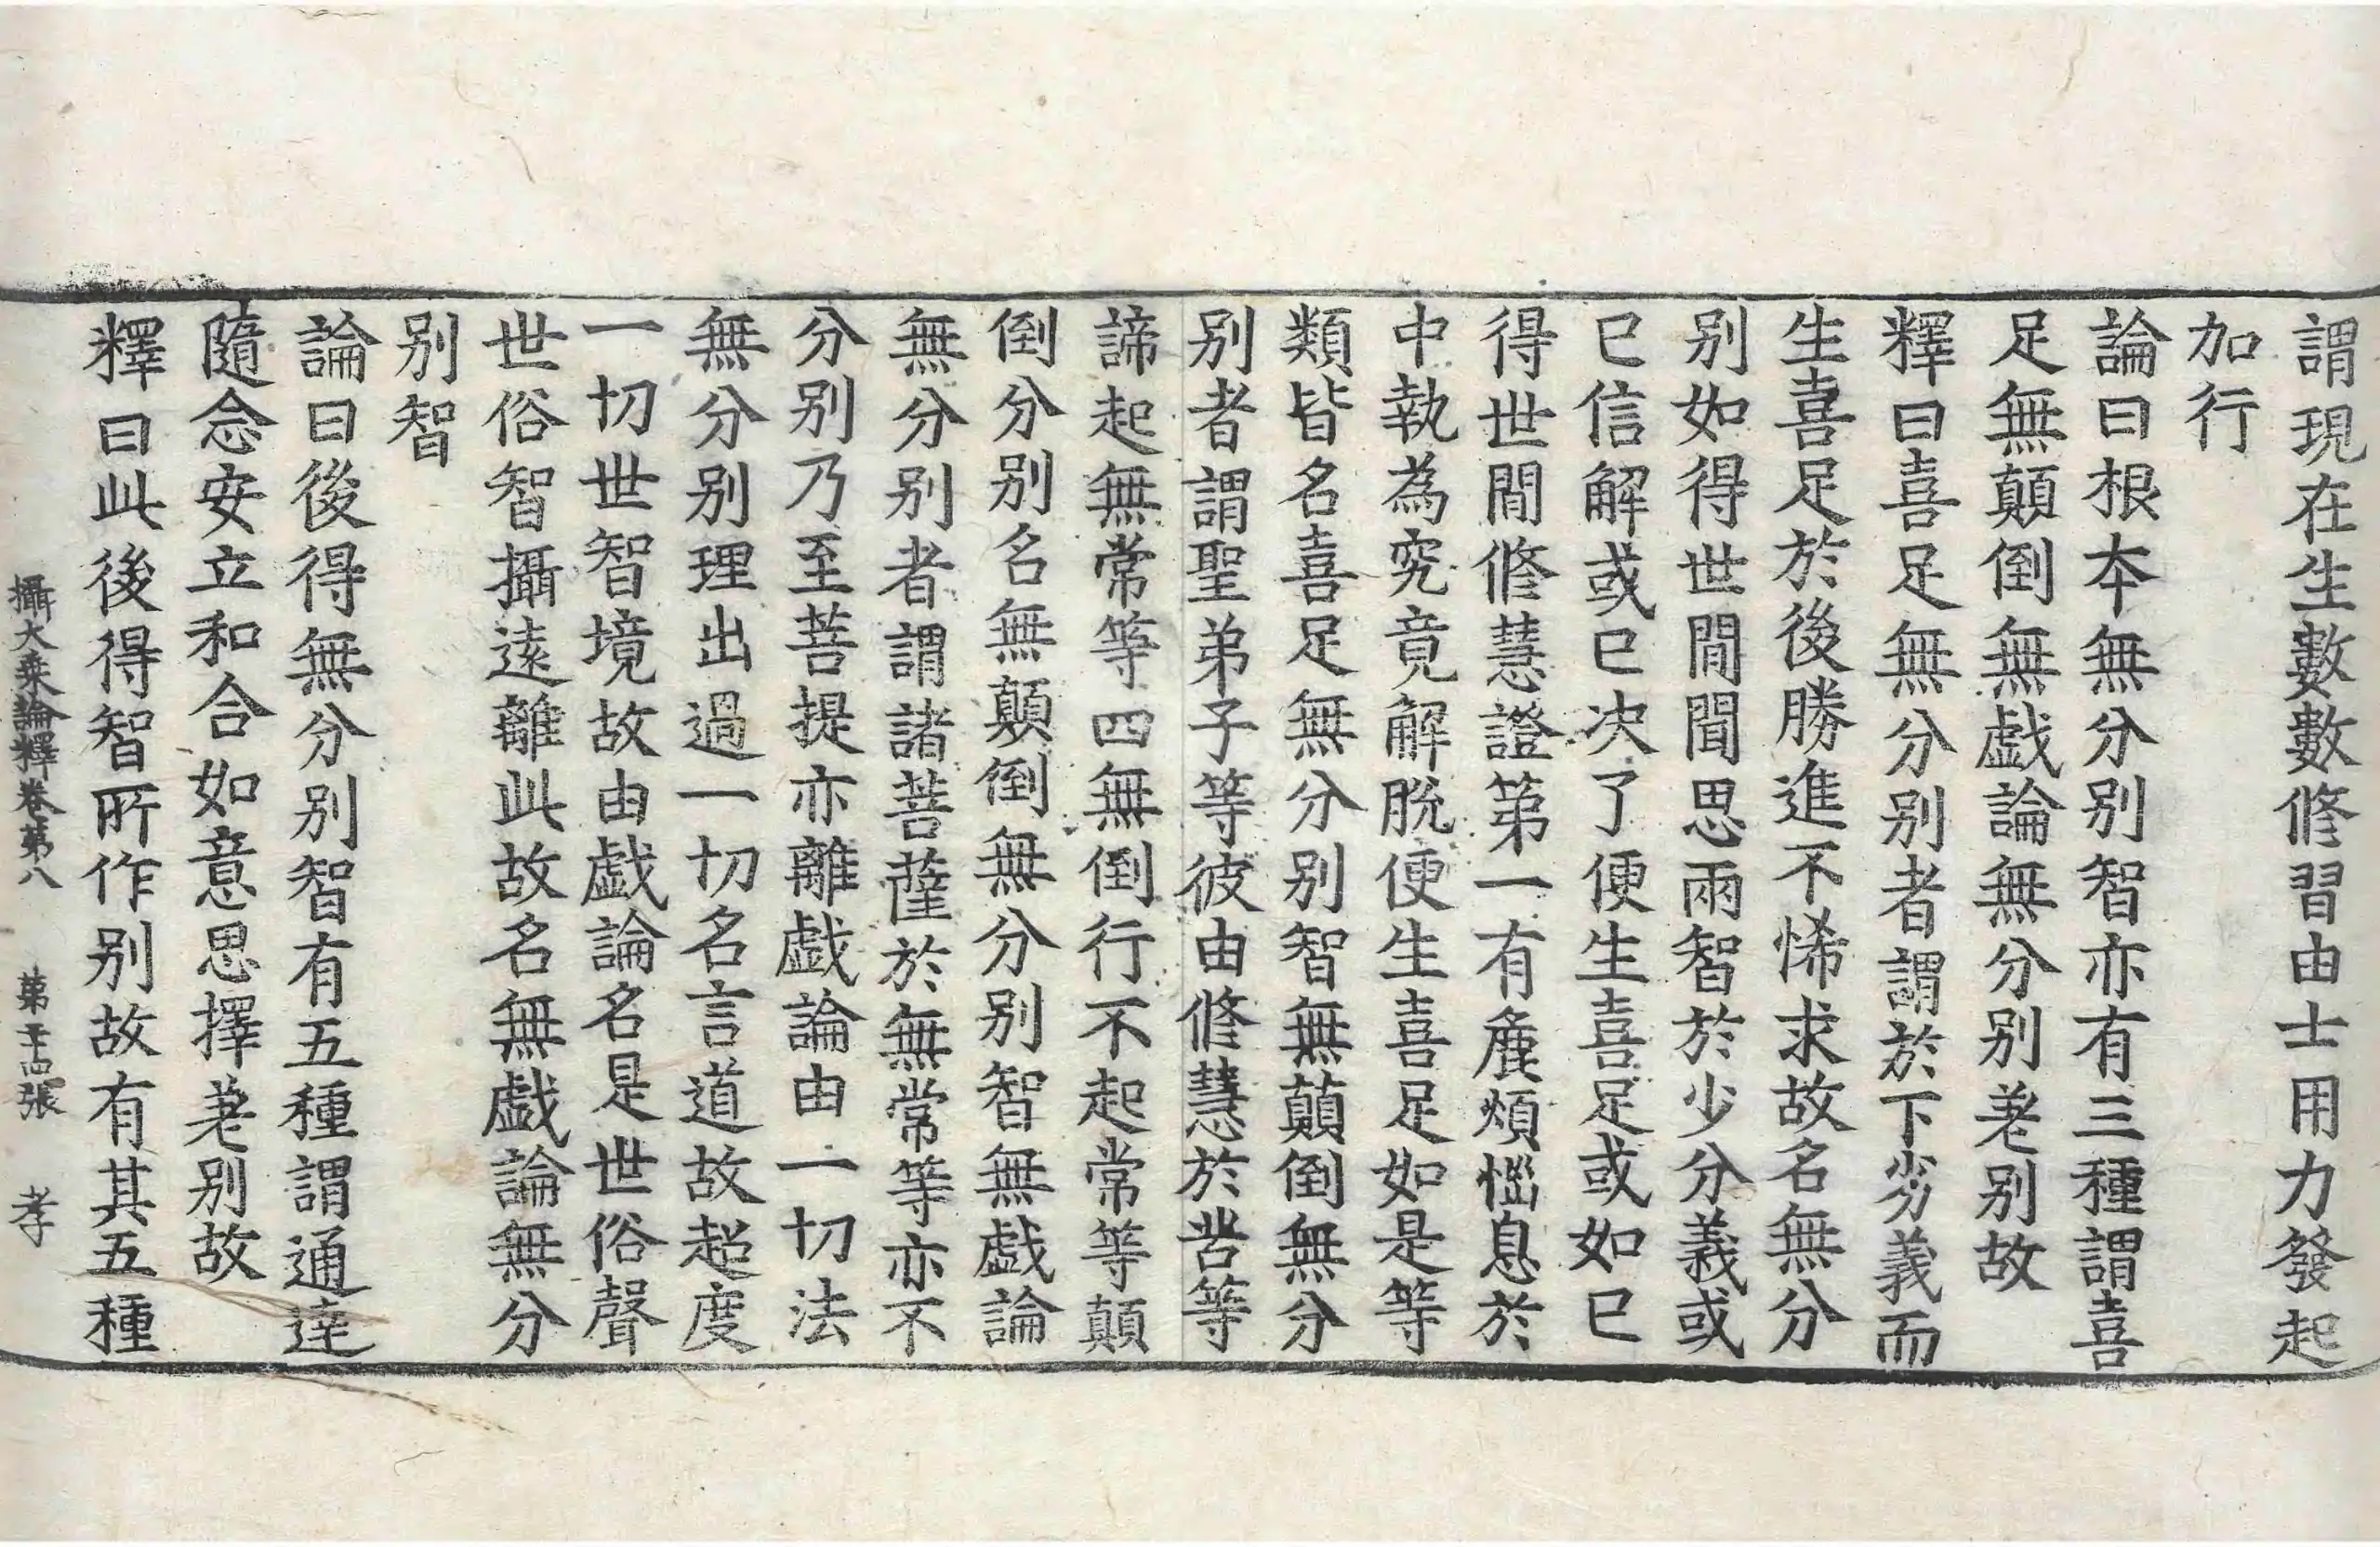 謂現在生數數修習由士用力發起
加行
論曰根本無分別智亦有三種謂喜
足無顛倒無戲論無分別差別故
釋曰喜足無分別者謂於下劣義而
生喜足於後勝進不悕求故名無分
別如得世間聞思兩智於少分義或
已信解或已決了便生喜足或如已
得世間修慧證第一有麁煩惱息於
中執為究竟解脫便生喜足如是等
類皆名喜足無分別智無顛倒無分
別者謂聖弟子等彼由修慧於苦等
諦起無常等四無倒行不起常等顛
倒分別名無顛倒無分別智無戲論
無分別者謂諸菩薩於無常等亦不
分別乃至菩提亦離戲論由一切法
無分別理出過一切名言道故超度
一切世智境故由戲論名是世俗聲
世俗智攝遠離此故名無戲論無分
別智
論曰後得無分別智有五種謂通達
隨念安立和合如意思擇差別故
釋曰此後得智所作別故有其五種
攝大乘論釋卷第八 第二十四張 孝